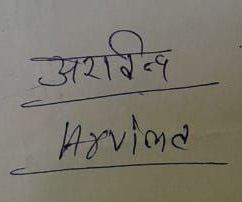 अरविन्द
Arvind